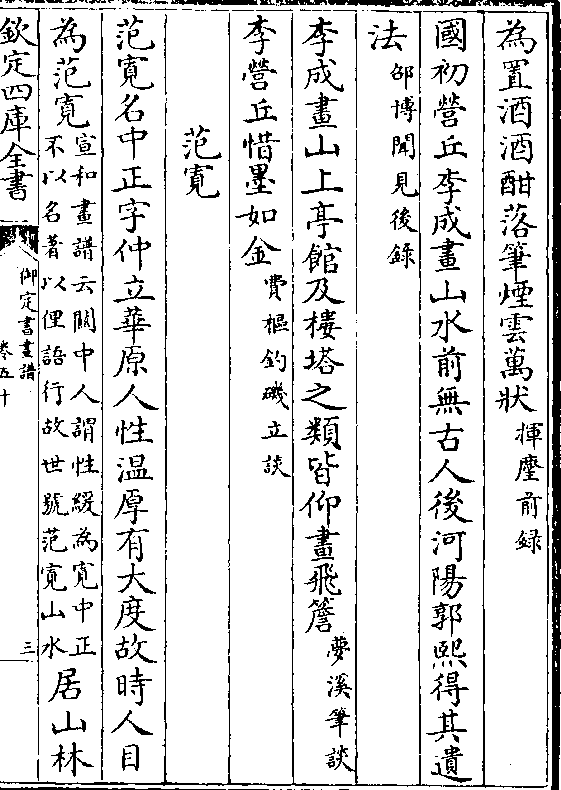 為置酒酒酣落筆煙雲萬狀揮麈前録
國初營丘李成畫山水前無古人後河陽郭熙得其遺
法邵博聞見後録
李成畫山上亭館及樓塔之類皆仰畫飛簷夢溪筆談
李營丘惜墨如金費樞釣磯立談
范寛
范寛名中正字仲立華原人性温厚有大度故時人目
為范寛宣和畫譜云關中人謂性緩為寛中正不以名著以俚語行故世號范寛山水居山林
欽定四庫全書
御定書畫譜
卷五十
三